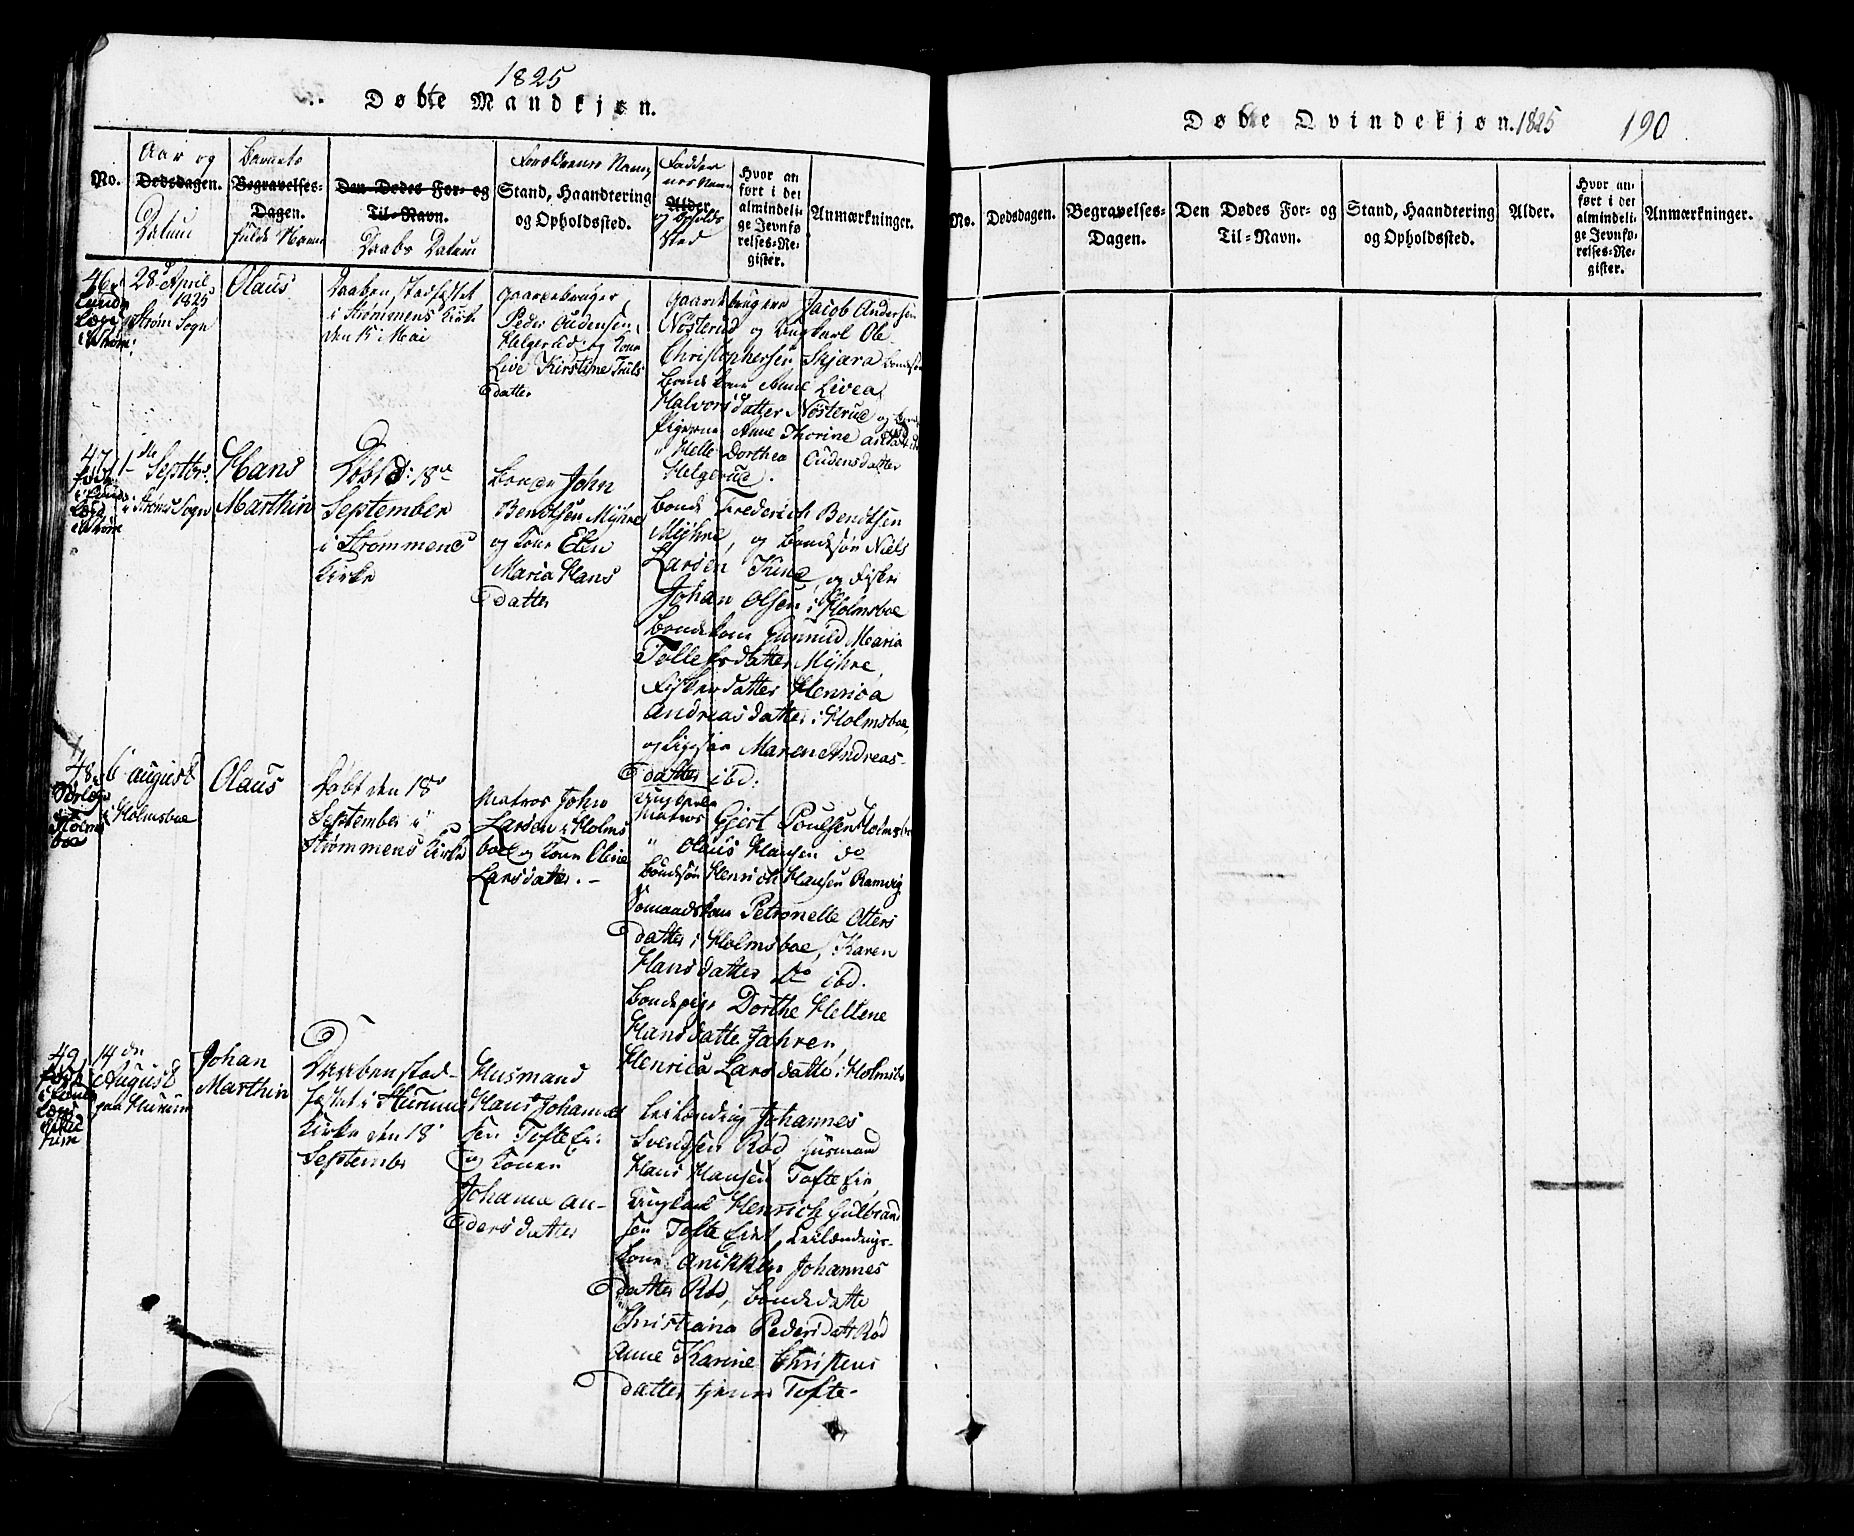 1825
Døbte Mandkjøn.
No.
Aar og
Dødsdagen.
Datum
Barnets
Begravelses-
Dagen.
fulde Navn
Den Dødes For- og
Til-Navn.
Daabs Datum
Forældrenes Navn,
Stand, Haandtering
og Opholdssted.
Fadder
nes Navn
Alder.
og Opholds
sted
Hvor an
ført i det
almindeli-
ge Jevnfø-
relses-Re-
gister.
Anmærkninger.
46
28 April
1825
Strøm Sogn
Olaus
Daaben stadfæstet
i Strømmens Kirke
den 15 Mai
Gaardebruger
Peder Audensen
Helgerud og Kone
Live Kirstine Truls
datter
Gaardbrugere Jacob Andersen
Nøsterud og Ungkarl Ole
Christophersen Skjæra
Bondekone Anne Livea
Halvorsdatter Nøsterud og
Pigerne Anne Thorine
Helle Dorthea Oudensdatter
Helgerud.
47
1 Septbr:
i Strøms Sogn
Hans
Marthin
Døbt d: 18
September
i Strømmens
Kirke
Bonde John
Bendtsen Mÿhre
og Kone Elen
Maria Hans
datter
Bonde Frederich Bendtsen
Mÿhre, og Bondesøn Niels
Larsen, og Fisker
Johan Olsen i Holmsboe
Bondekone Gunnild Maria
Tollefsdatter Mÿhre,
Fiskerdatter Henrica
Andreasdatter i Holmsboe,
og Maren Andreas-
datter ibd:
48
6 august
i Holmsboe
Olaus
Døbt den 18
September i
Strømmens Kirke
Matros John
Larsen i Holms
boe og Kone Oline
Larsdatter.-
Ungkarl
Matros Gjert Poulsen Holmsboe
" Olaus Hansen do
Bondesøn Henrich Hansen Ramvig
Sømandskone Petronelle Otters
datter i Holmsboe, Karen
Hansdatter do ibd.
Bondepige Dorthe Hellene
Hansdatter Jahren,
Henrica Larsdatter i Holmsboe
49
14 de
August
paa Hurum
Johan
Marthin
Daaben stad-
fæstet i Hurums
Kirke den 18
September
Husmand
Hans Johanne
sen Tofte Ei:
og Konen
Johanne An-
dersdatter
Leilænding Johannes
Svendsen Rød, Husmand
Hans Hansen Tofte Eie
Ungkarl Henrich Gulbrand
sen Tofte Eie, Leilændings-
kone Anikken Johannes
datter Rød, Bondedatter
Christiana Pedersdatt Rød
Anne Karine Christens
datter tjener Tofte-
Døbte Qvindekjøn. 1825
190
No.
Dødsdagen.
Begravelses-
Dagen.
Den Dødes For- og
Til-Navn.
Stand, Haandtering
og Opholdssted.
Alder.
Hvor an-
ført i det
almindeli-
ge Jevnfø-
relses-Re-
gister.
Anmærkninger.